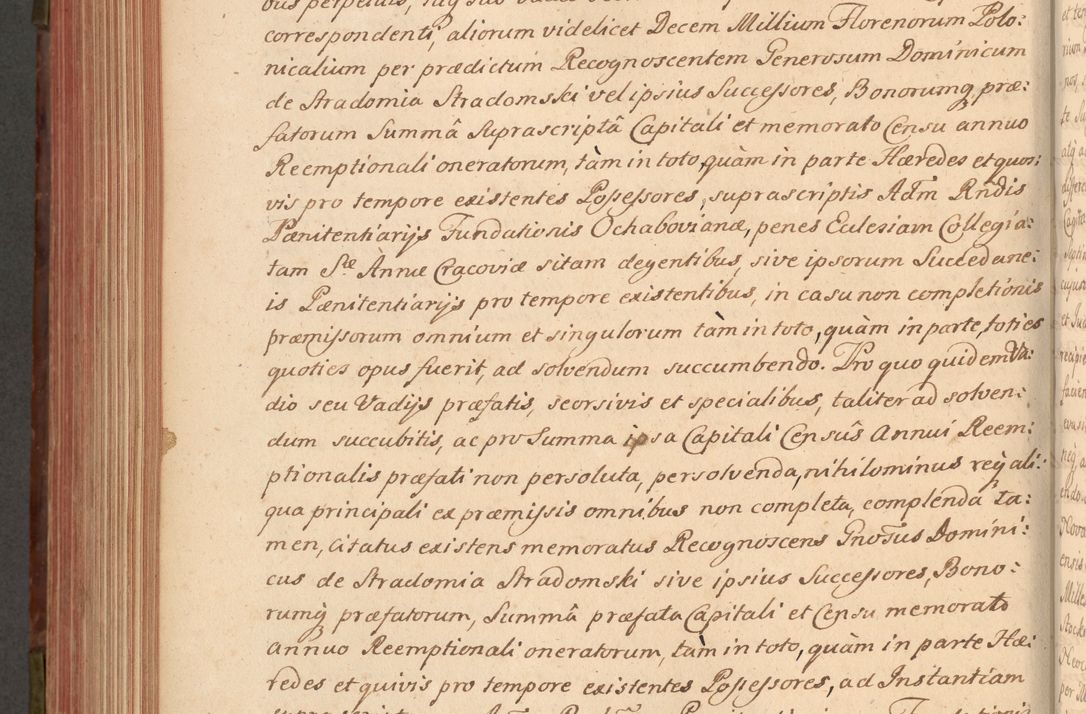 correspondenti, aliorum videlicet Decem Millium Florenorum Polo:
nicalium per prædictum Recognoscentem Generosum Dominicum
de Stradomia Stradomski vel ipsius Successores, Bonorumq præ:
fatorum Summâ Suprascriptâ Capitali et memorato Censu annuo
Reemptionali oneratorum, tàm in toto, quàm in parte Hæredes et quos:
vis pro tempore existentes Possessores, suprascriptis Adm̃ Rñdis
Pænitentiarijs Fundationis Ochabovianæ, penes Ecclesiam Collegia:
tam Stæ Annæ Cracoviæ sitam degentibus, sive ipsorum Succedane:
is Pænitentiarijs pro tempore existentibus, in casu non completionis
præmissorum omnium et singulorum tàm in toto, quàm in parte, toties
quoties opus fuerit, ad solvendum succumbendo. Pro quo quidem Va:
dio seu Vadijs præfatis, seorsivis et specialibus, taliter ad solven:
dum succubitis, ac pro Summa ipsa Capitali Censûs Annui Reem:
ptionalis præfati non persoluta, persolvenda, nihilominus reỹ ali:
qua principali ex præmissis omnibus non completa, complenda ta:
men, Citatus existens memoratus Recognoscens Gnõsus Domini:
cus de Stradomia Stradomski sive ipsius Successores, Bono:
rumq̃ præfatorum, Summâ præfata Capitali et Censu memorato
annuo Reemptionali oneratorum, tàm in toto, quàm in parte Hæ:
redes et quivis pro tempore existentes Possessores, ad Instantiam